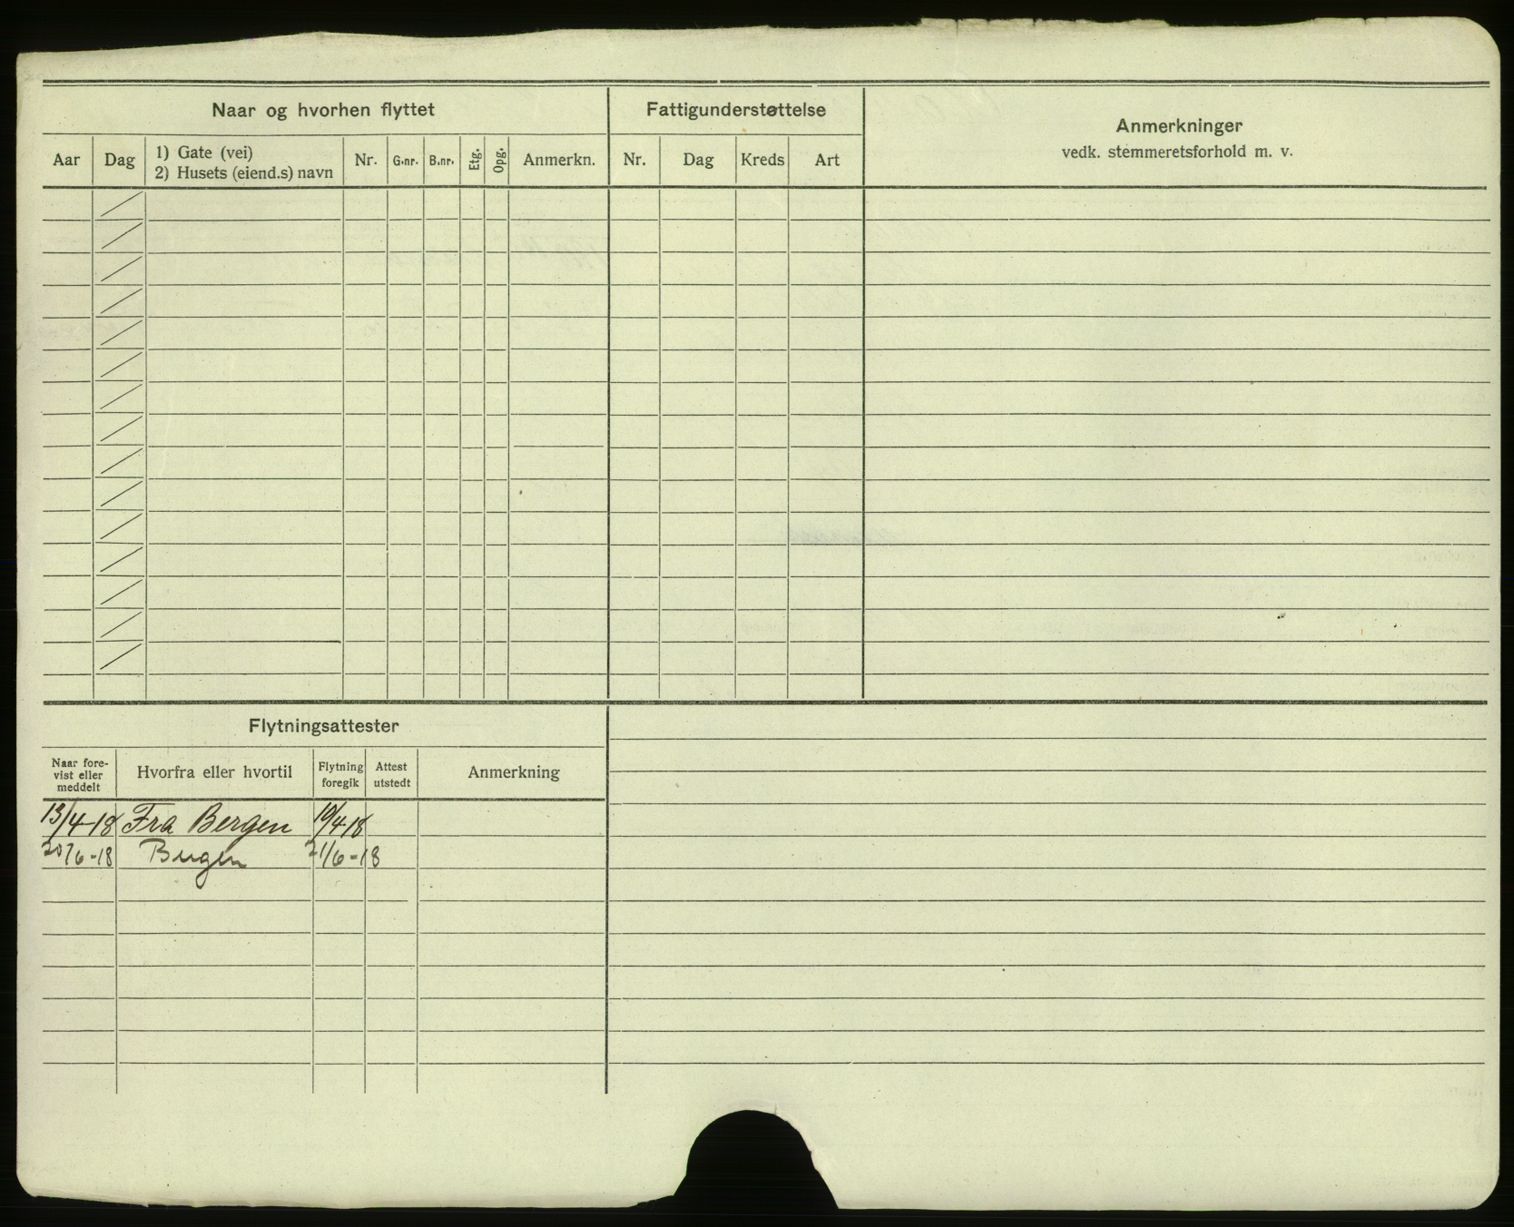 Naar og hvorhen flyttet
Fattigunderstøttelse
Anmerkninger
vedk. stemmeretsforhold m. v.
Aar
Dag
1) Gate (vei)
2) Husets (eiend.s) navn
Nr.
G.nr.
B.nr.
Etg.
Opg.
Anmerkn.
Nr.
Dag
Kreds
Art
Flytningsattester
Naar fore-
vist eller
meddelt
Hvorfra eller hvortil
Flytning
foregik
Attest
utstedt
Anmerkning
13/4-18 Fra Bergen 10/4-18
20/6-18 Bergen 21/6-18